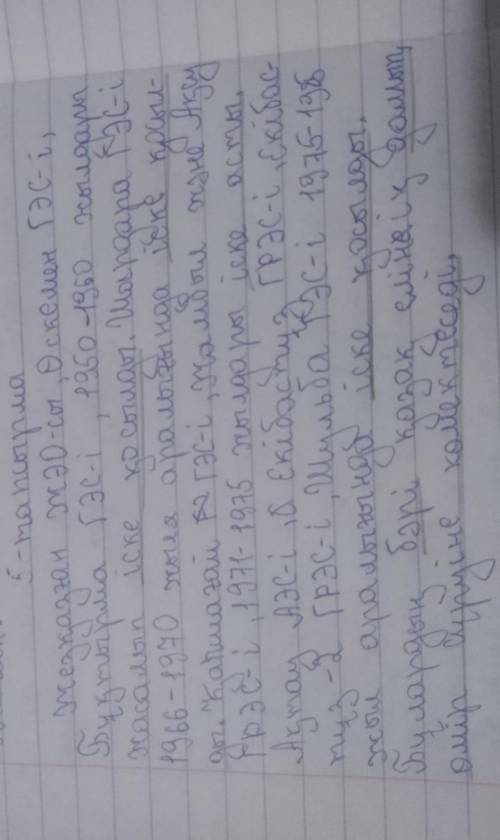 5-тапсырма
Жезқазған ЖЭО-сы, Өскемен ГЭС-і,
Бұқтырма ГЭС-і, 1950-1960 жылдары
жасалып іске қосылды. Шардара ГЭС-і
1966-1970 жыл аралығында іске қосыл-
ды. Капшағай ГЭС-і, Жамбыл және Ақсу
ГРЭС-і, 1971-1975 жылдары іске асты.
Ақтау АЭС-і, Екібастұз ГРЭС-і, Екібас-
тұз-2 ГРЭС-і, Шульба ГЭС-і 1975-1985
жыл аралығында іске қосылды.
Бұлардың бәрі қазақ елінің дамып,
өмір сүруіне көмектеседі.